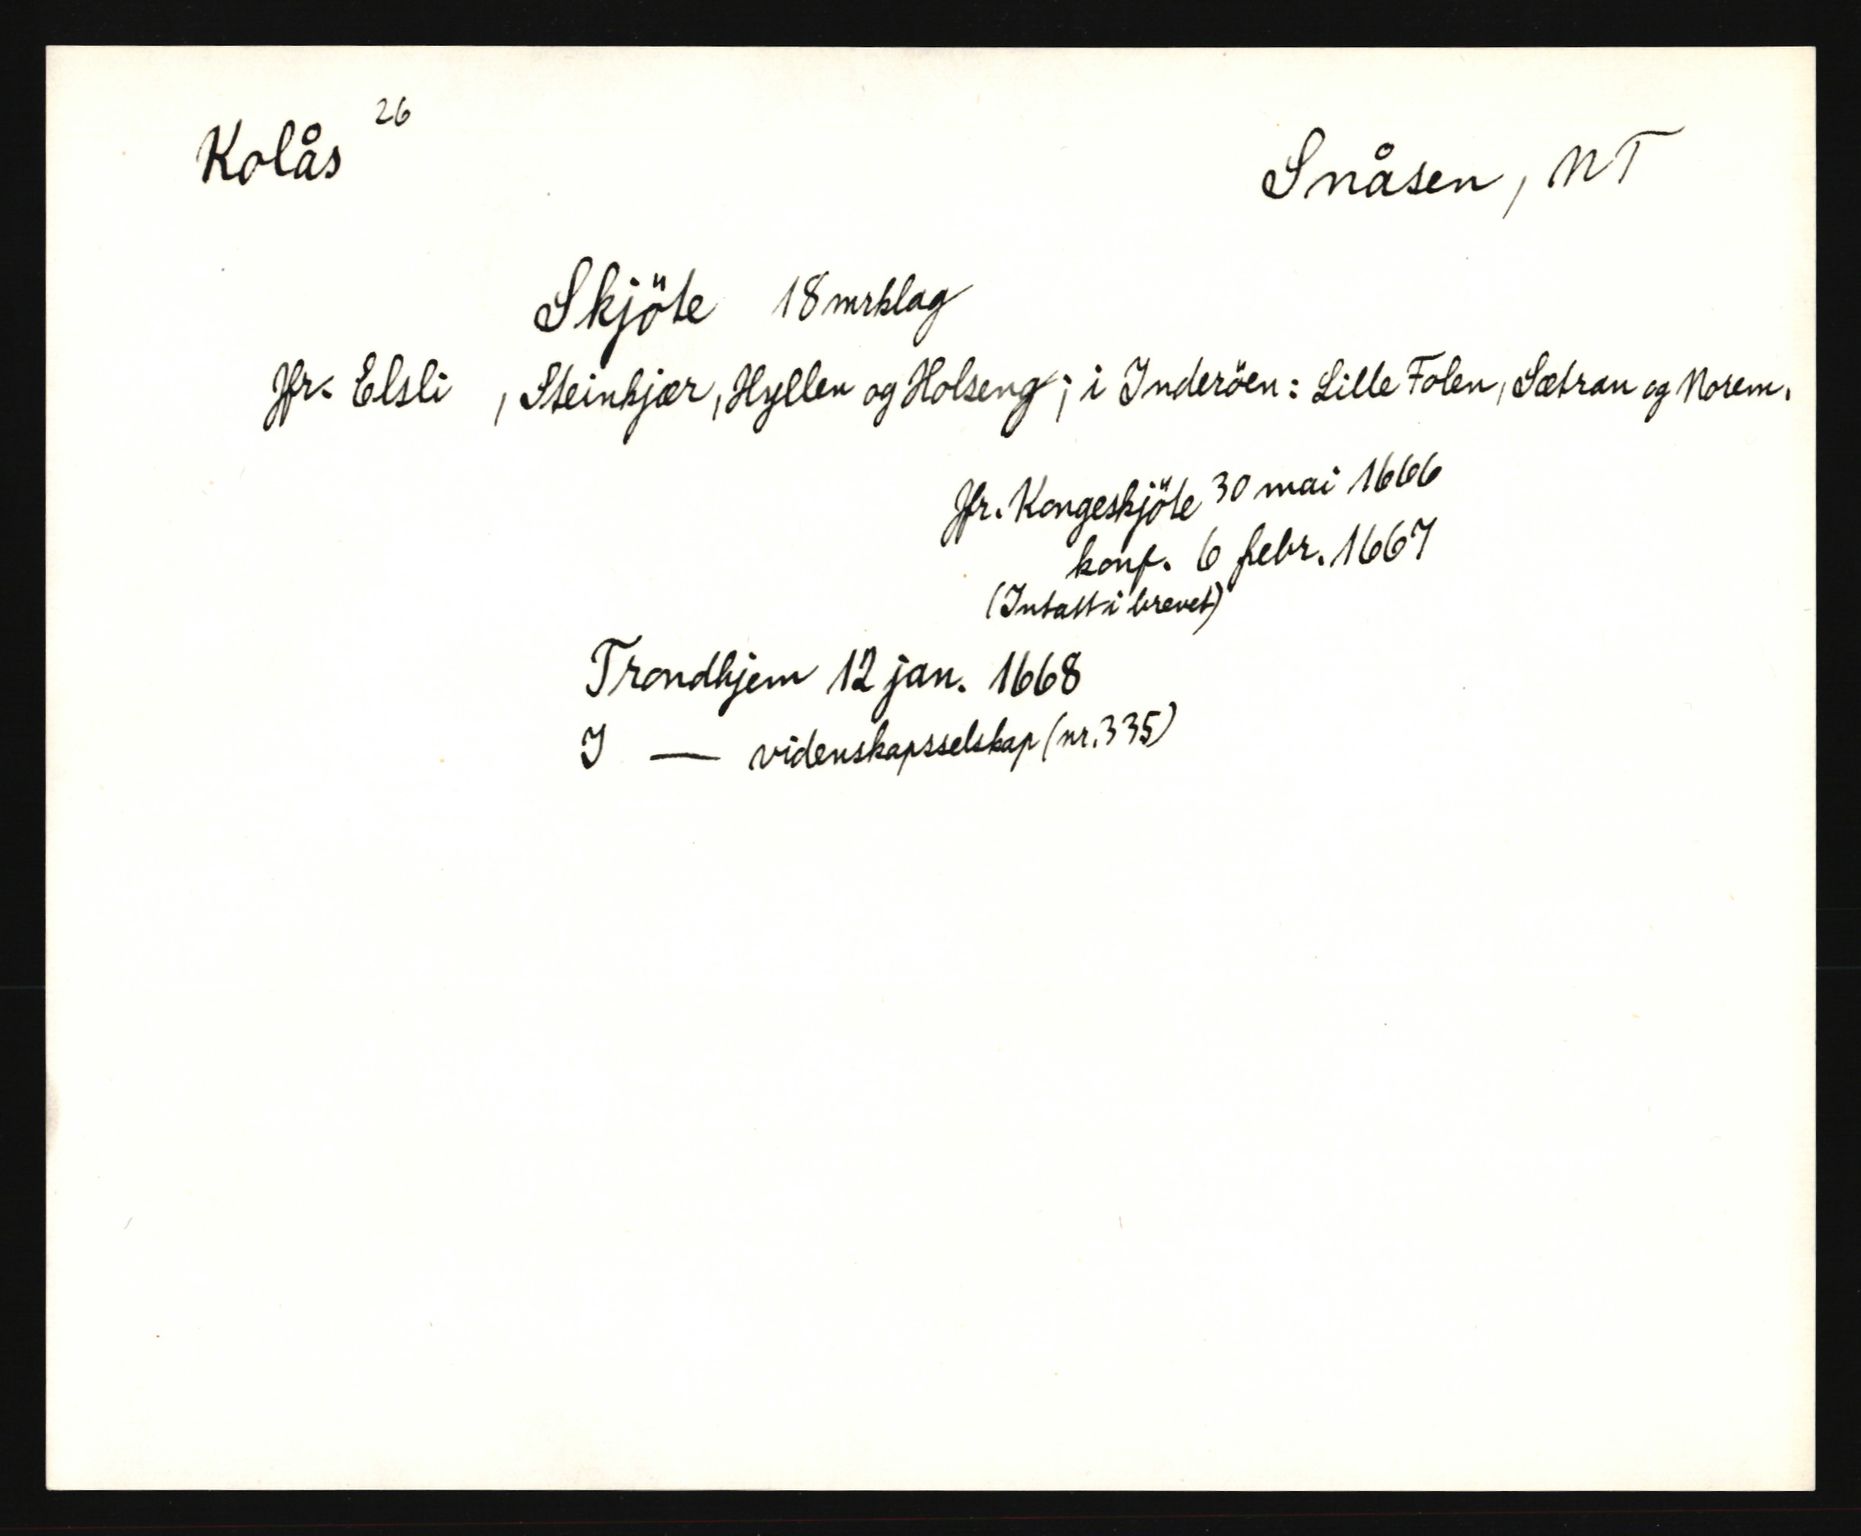 Kolås 26
Snåsen, NT
Skjöte 18 mrklag
Jfr. Elsli , Steinkjær, Hyllen og Holseng; i Inderöen: Lille Folen, Sætran og Norem.
Jfr. Kongeskjöte 30 mai 1666
konf. 6 febr. 1667
(Intatt i brevet)
Trondhjem 12 jan. 1668
I — videnskapsselskap (nr. 335)